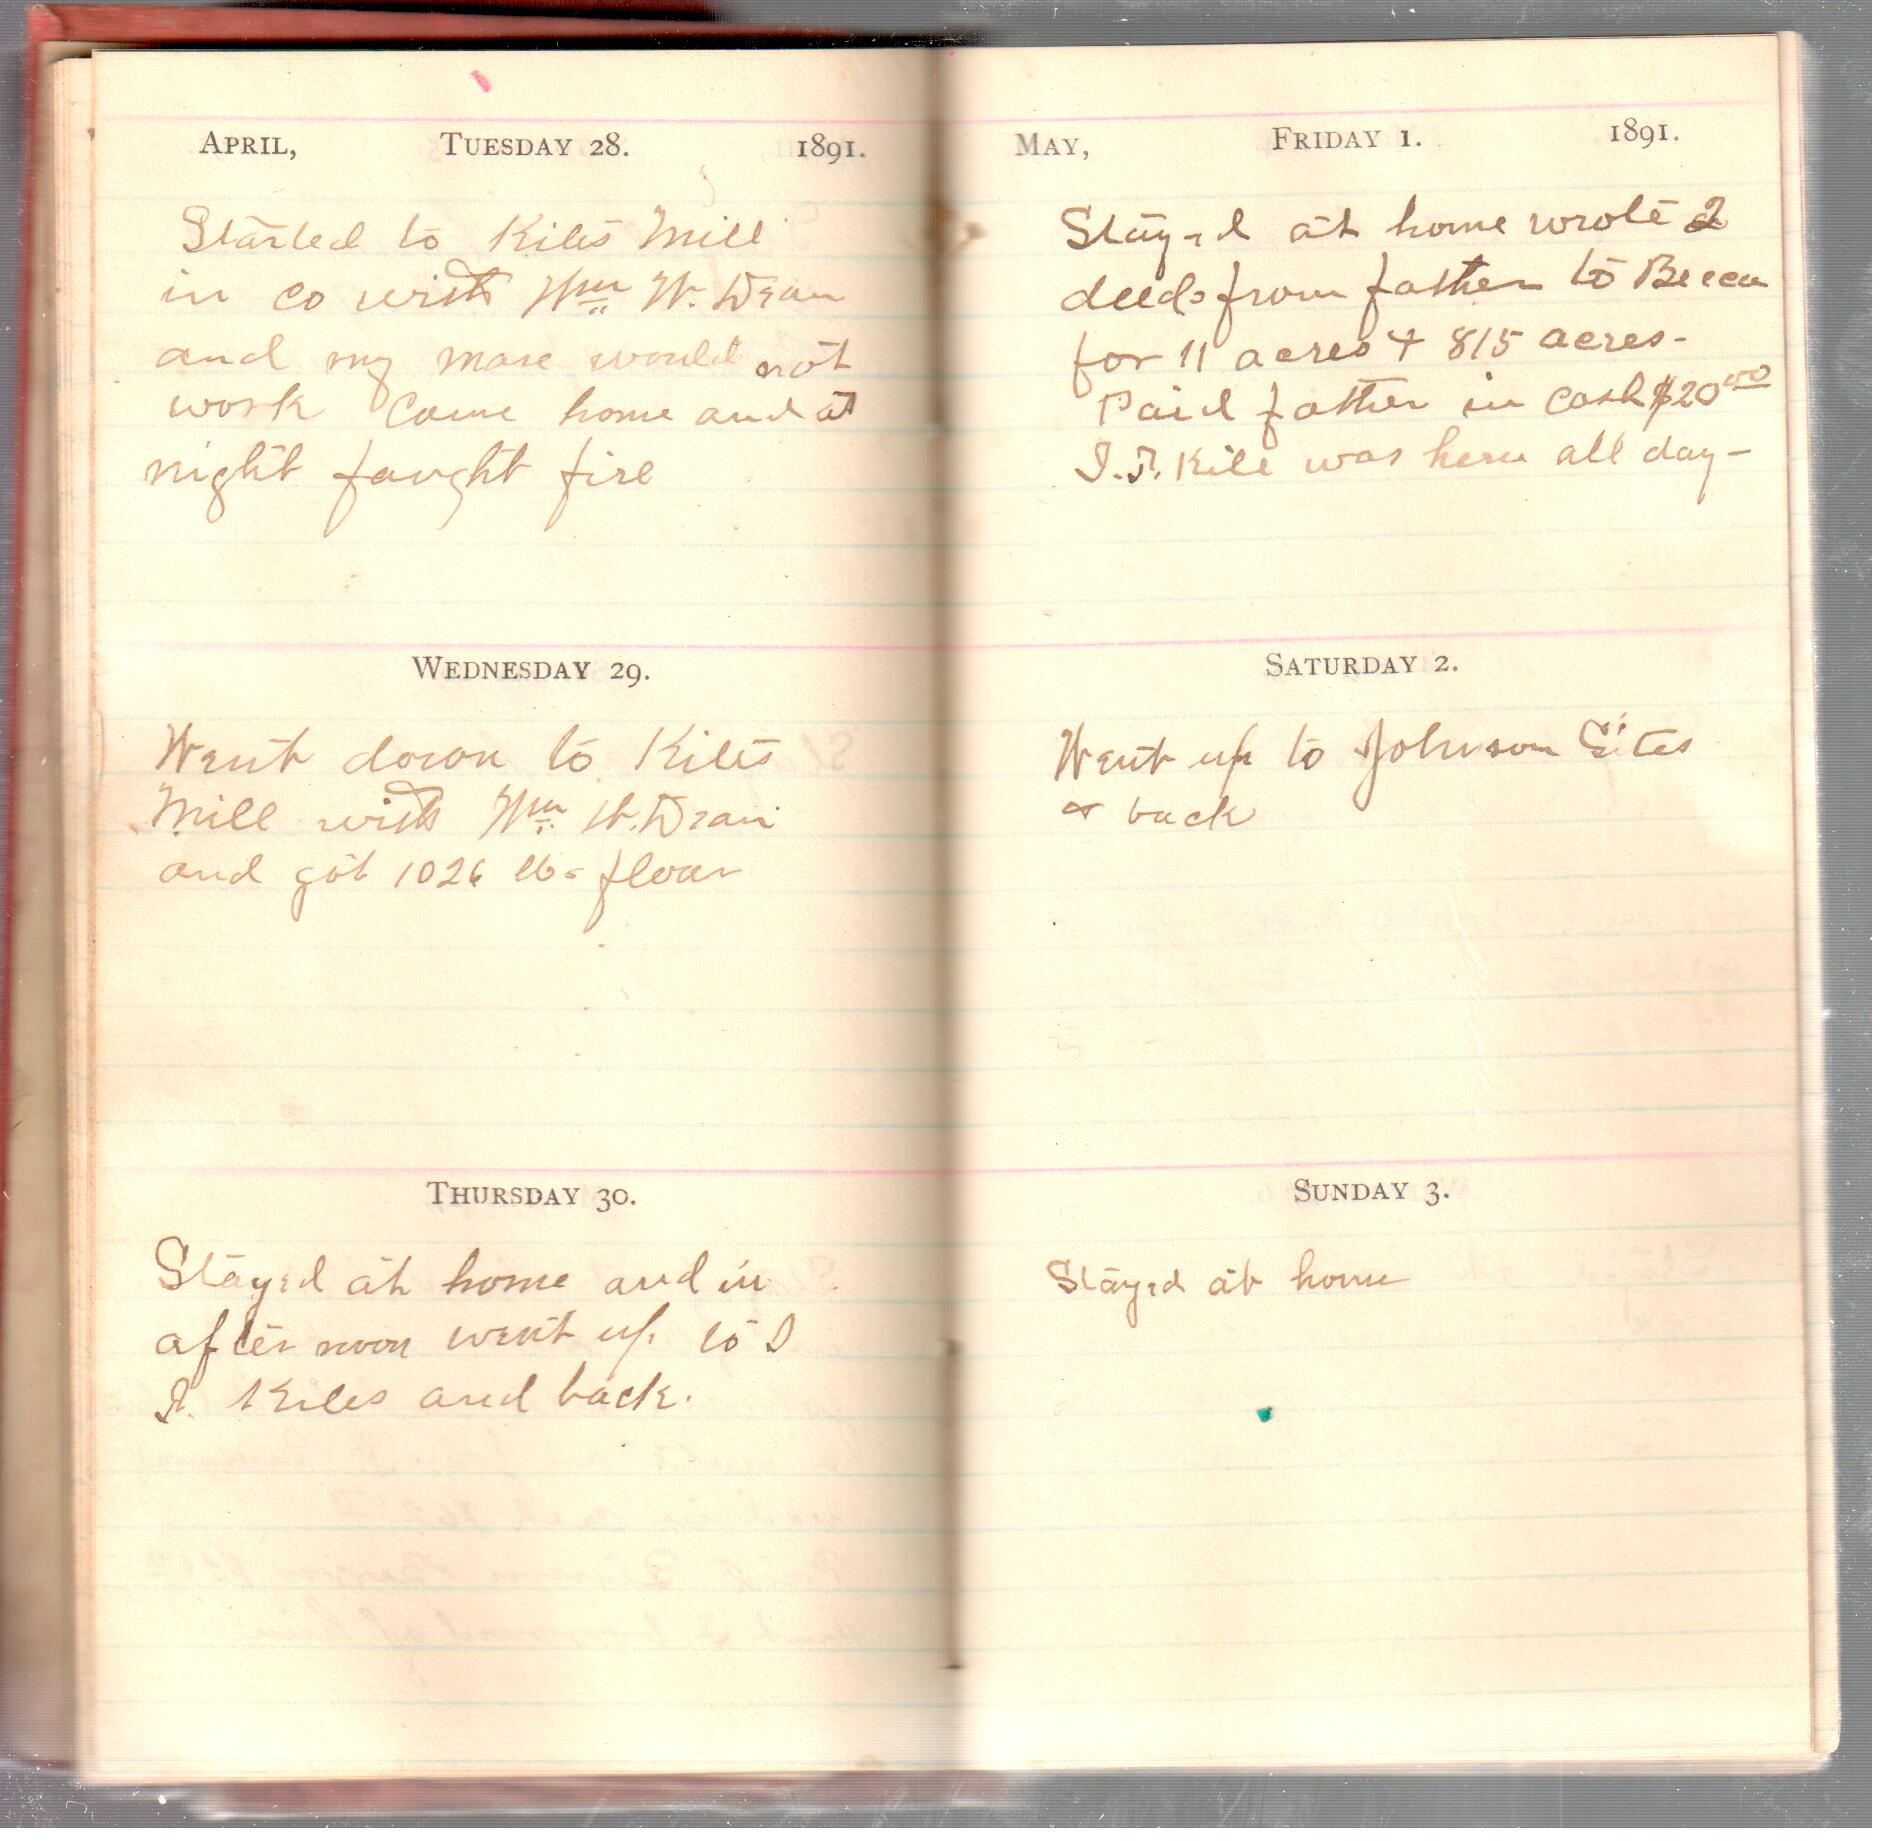 APRIL, TUESDAY 28. 1891.
Started to Kiles Mill
in co with Wm W. Dean
and my mare would not
work Came home and at
night faught fire
WEDNESDAY 29.
Went down to Kiles
Mill with Wm W. Dean
and got 1026 lbs flour
THURSDAY 30.
Stayed at home and in
after noon went up to I
J. Kiles and back.
MAY, FRIDAY 1. 1891.
Stayed at home wrote 2
deeds from father to Becca
for 11 acres + 815 acres-
Paid father in cash $20.00
I. J. Kile was here all day-
SATURDAY 2.
Went up to Johnson Sites
& back
SUNDAY 3.
Stayed at home